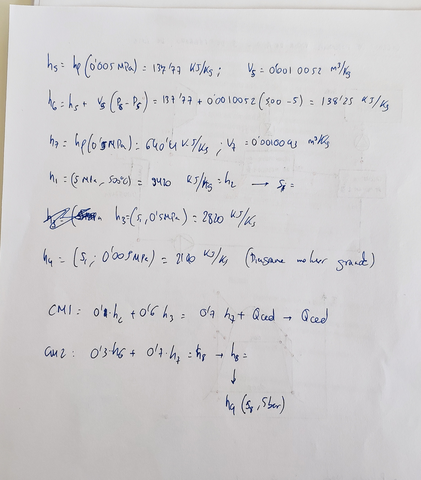 h5 = hp(0'005 MPa) = 137'77 KJ/Kg; V5 = 0'0010052 m³/Kg
h6 = h5 + V5(P6 - P5) = 137'77 + 0'0010052(500 - 5) = 138'25 KJ/Kg
h7 = hp(0'5MPa) = 640'4 KJ/Kg; V7 = 0'001093 m³/Kg
h1 = (5 MPa, 500ºC) = 3420 KJ/Kg = h2 →
h3 = (S1, 0'5MPa) = 2820 KJ/Kg
h4 = (S1; 0'005MPa) = 2190 KJ/Kg (Diagrama moher grande)
CM1: h2 + 0'6 h3 = 0'7 h7 + Qced → Qced
CM2: 0'3·h6 + 0'7·h7 = h8 → h8 =
↓
h9 (S8, 5bar)